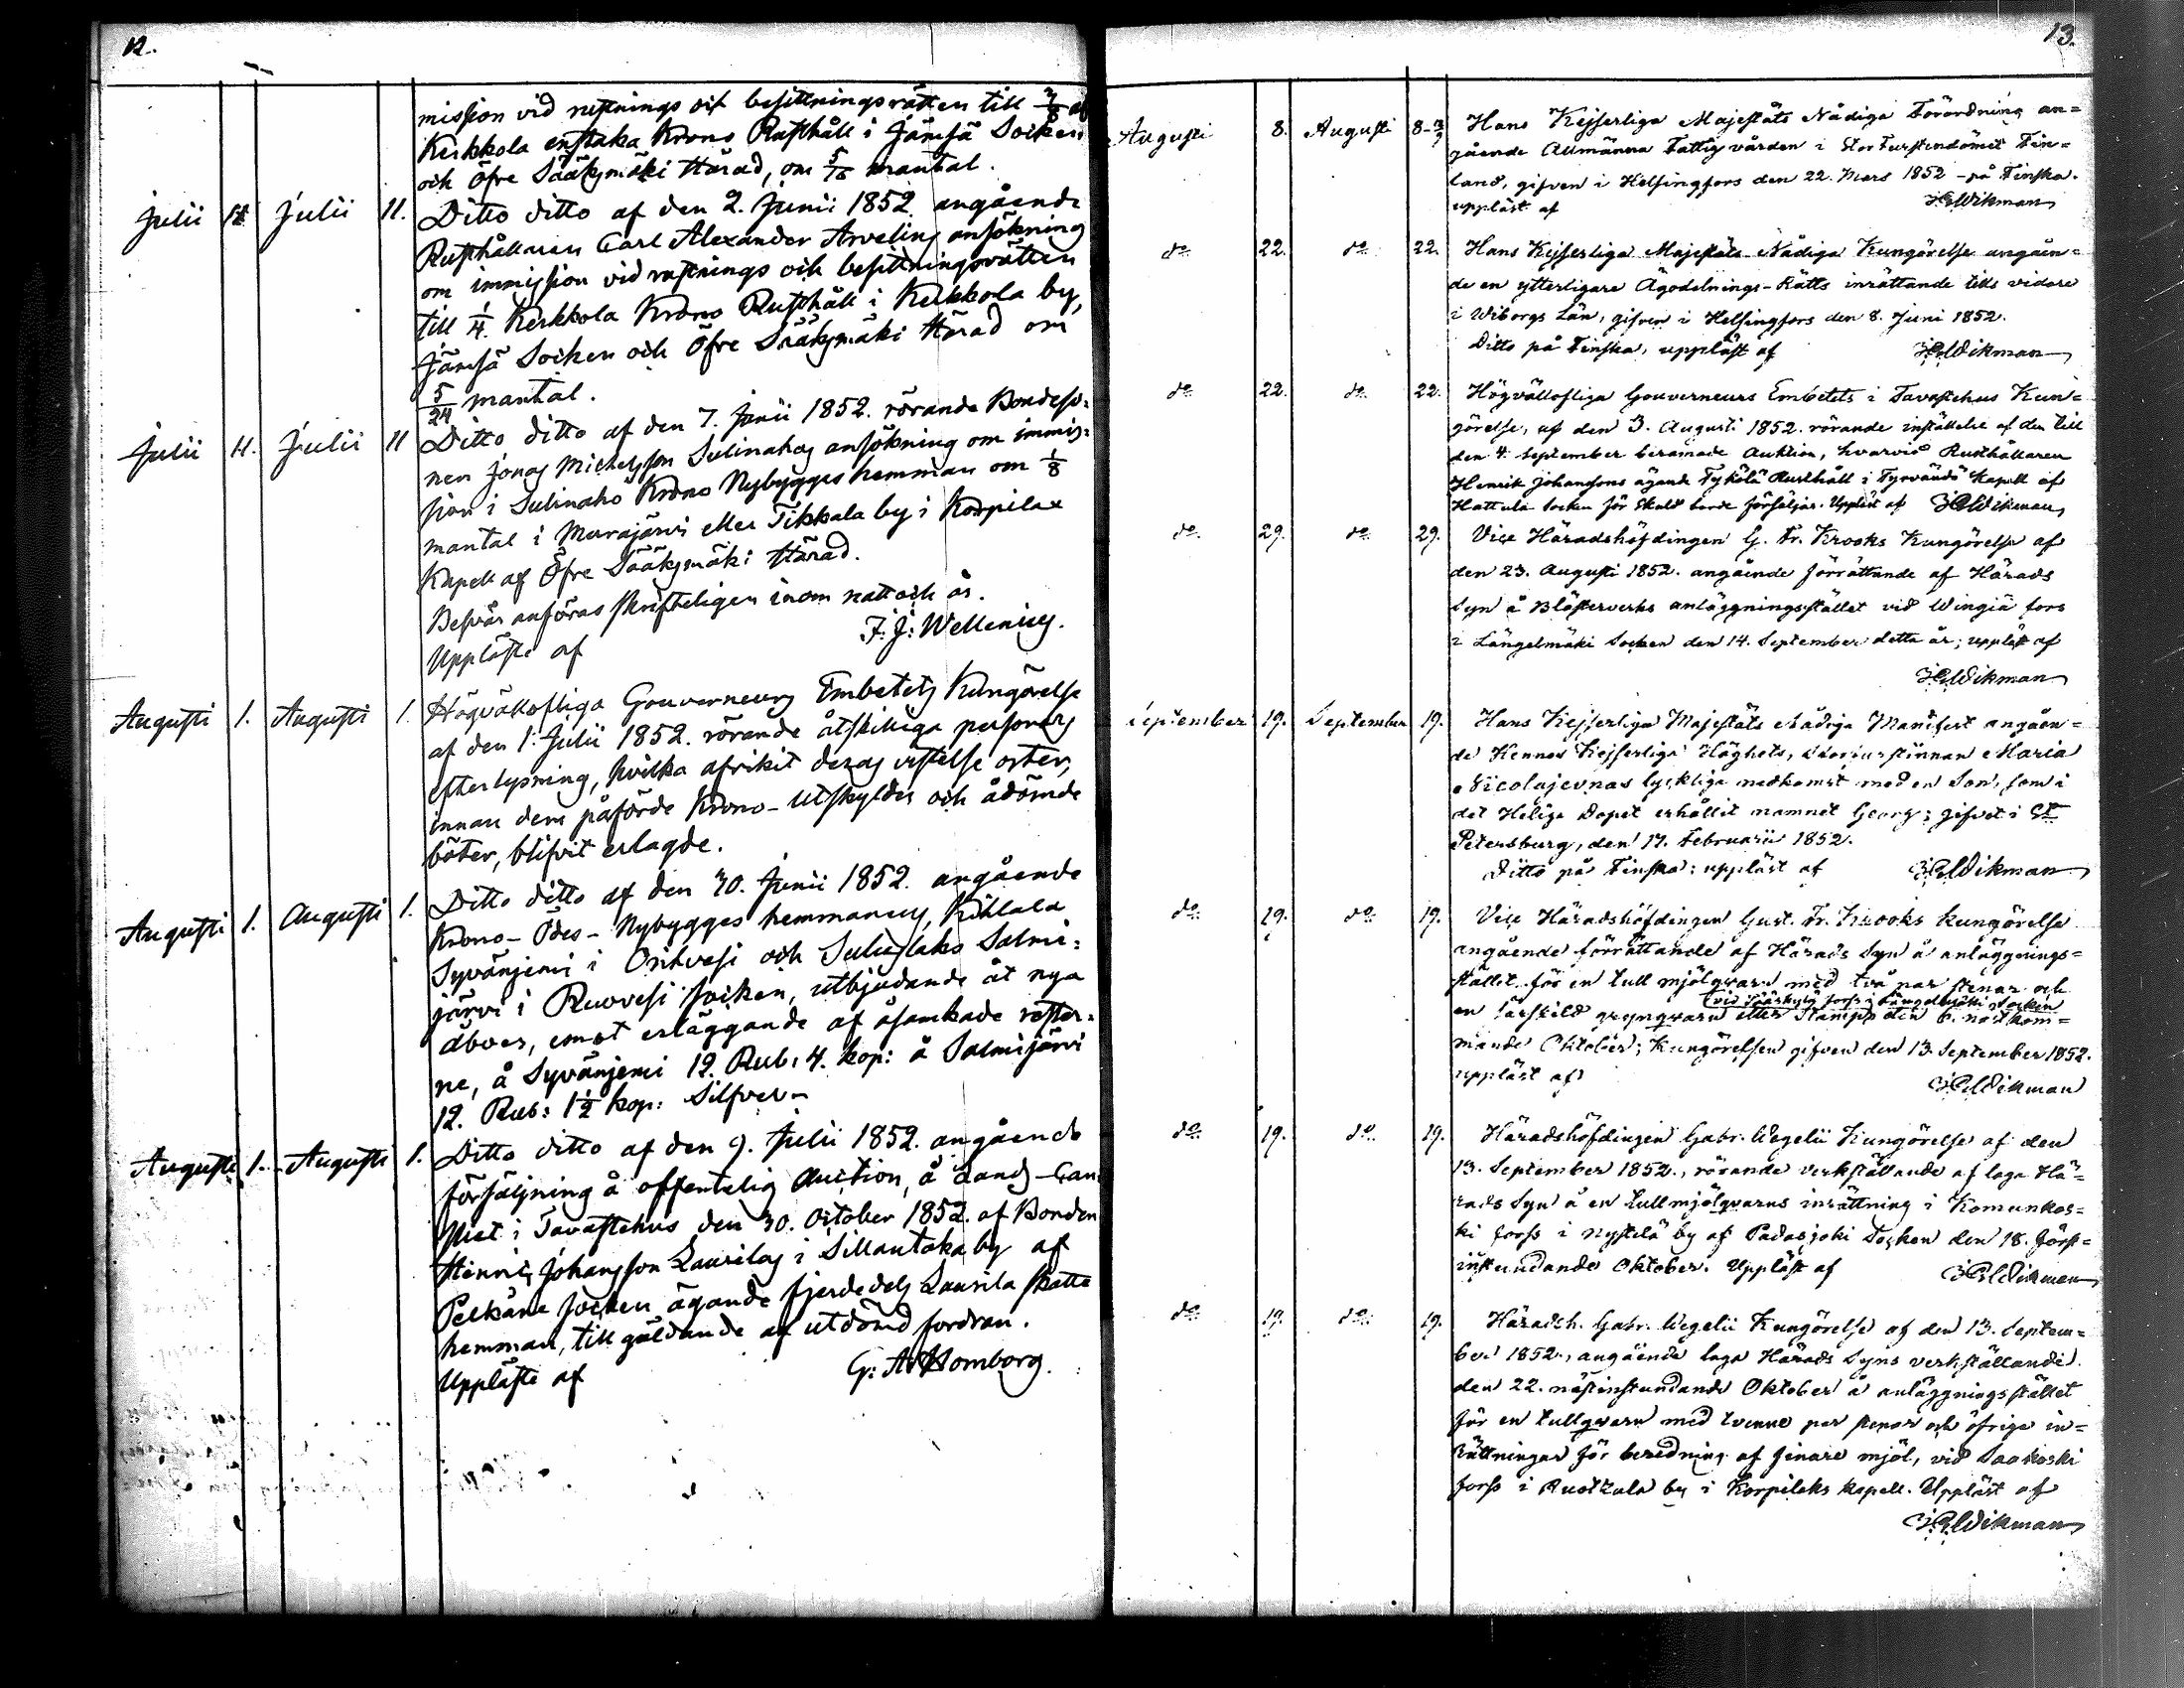 12.
mission vid rustnings och besittningsrätten till 3/8 af
Kerkkola enstaka Krono Rusthåll i Jämsä Socken
och Öfre Sääksmäki Härad, om 5/16 mantal.
Julii 11. Julii 11. Ditto ditto af den 2. Junii 1852. angående
Rusthållaren Carl Alexander Arvelins ansökning
om immission vid rustnings och besittningsrätten
till 1/4 Kerkkola Krono Rusthåll i Kerkkola by,
Jämsä Socken och Öfre Sääksmäki Härad om
5/24 mantal.
Julii 11. Julii 11 Ditto ditto af den 7. Junii 1852. rörande Bondeso-
nen Jonas Michelsson Sulinahos ansökning om immis-
sion i Sulinaho Krono Nybygges hemman om 1/8
mantal i Murajärvi eller Tikkala by i Korpilax
Kapell af Öfre Sääksmäki Härad.
Besvär anföras skrifteligen inom natt och år.
Uppläste af F: J: Wellenius.
Augusti 1. Augusti 1. Högvällofliga Gouverneurs Embetets Kungörelse
af den 1. Julii 1852. rörande åtskilliga personers
efterlysning, hvilka afvikit deras vistelse orter,
innan dem påförde Krono-Utskylder och ådömde
böter, blifvit erlagde.
Augusti 1. Augusti 1. Ditto ditto af den 30. Junii 1852. angående
Krono-Ödes-Nybygges hemmanens, Kihlala
Syvänjemi i Orihvesi och Salmi-
järvi i Ruovesi socken, utbjudande åt nya
åboer, emot erläggande af åsamkade rester-
ne, å Syvänjemi 12. Rub. 4. kop: å Salmijärvi
12. Rub: 1 1/2 kop: Silfver-
Augusti 1. Augusti 1. Ditto ditto af den 9. Julii 1852. angående
försäljning å offentelig Auction, å Lands-Can-
sliet i Tavastehus den 30. October 1852. af Bonden
Henric Johansson Laurilas i Sillantaka by af
Pelkäne socken ägande fjerdedels Laurila skatte
hemman, till gäldande af utdömd fordran.
Uppläste af G: A: Homborg.
13.
Augusti 8. Augusti 8-12/9 Hans Kejserliga Majestäts Nådiga Förordning an-
gående Allmänna Fattigvården i StorFurstendömet Fin-
land, gifven i Helsingfors den 22. Mars 1852 - på Finska.
uppläst af Wikman
do 22. do 22. Hans Kejserliga Majestäts Nådiga Kungörelse angåen-
de en ytterligare Ägodelnings-Rätts inrättande tills vidare
i Wiborgs Län, gifven i Helsingfors den 8. Juni 1852.
Ditto på Finska, uppläst af Wikman
do 22. do 22. Högvällofliga Gouverneurs Embetets i Tavastehus Kun-
görelse, af den 3. Augusti 1852. rörande inställelse af den till
den 4. September beramade Auktion, hvarvid Rusthållaren
Henrik Johanssons ägande Tykölä Rusthåll i Tyrvändö Kapell af
Hattula Socken för Skuld borde försäljas. Uppläst af Wikman
do 29. do 29. Vice Häradshöfdingen G. Fr. Krooks Kungörelse af
den 23. Augusti 1852. angående förrättande af Härads
Syn å Blästerverks anläggningsstället vid Wingiä fors
i Längelmäki Socken den 14. September detta år; uppläst af
Wikman
September 19. September 19. Hans Kejserliga Majestäts Nådiga Manifest angåen-
de Hennes Kejserliga Höghets, Storfurstinnan Maria
Nicolajevnas lyckliga nedkomst med en Son, som i
det Heliga Dopet erhållit namnet Georg; gifvet i St
Petersburg, den 17. Februarii 1852.
Ditto på Finska: uppläst af Wikman
do 19. do 19. Vice Häradshöfdingen Gust. Fr. Krooks kungörelse
angående förrättande af Härads Syn å anläggnings-
stället för en tull mjölqvarn med två par stenar och
vid forss i Längelmäki Socken
en särskild grynqvarn eller Stamp den 6. nästkom-
mande Oktober; Kungörelsen gifven den 13. September 1852.
uppläst af Wikman
do 19. do 19. Häradshöfdingen Gabr. Wegelii Kungörelse af den
13. September 1852., rörande verkställande af laga Hä-
rads Syn å en tullmjölqvarns inrättning i Komunkos-
ki forss i Nystelä by af Padasjoki Socken den 18. först-
instundande Oktober. Uppläst af Wikman
do 19. do 19. Häradsh. Gabr. Wegelii Kungörelse af den 13. Septem-
ber 1852., angående laga Härads Syns verkställande
den 22. nästinstundande Oktober å anläggningsstället
för en tullqvarn med tvenne par stenar och öfriga in-
rättningar för beredning af finare mjöl, vid Saakoski
forss i by i Korpilaks kapell. Uppläst af
Wikman